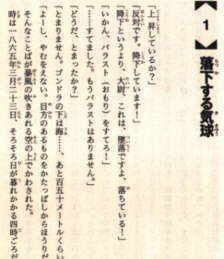 1
落下する気球
「上昇しているか？」
「反対です。降下しています！」
「降下というより、大尉、これは、墜落ですよ。落ちている！」
「いかん、バラスト（おもり）をすてろ！」
「……すてました。もうバラストはありません。」
「どうだ、とまったか？」
「とまりません。ゴンドラの下は海……あと百五十メートルくらい
「よーし、やむをえない。目方のあるものをかたっぱしからほうりだ
そんなことばが暴風の吹きあれる空の上でかわされた。
時は一八六五年三月二十三日、そろそろ日が暮れかかる四時ごろだ